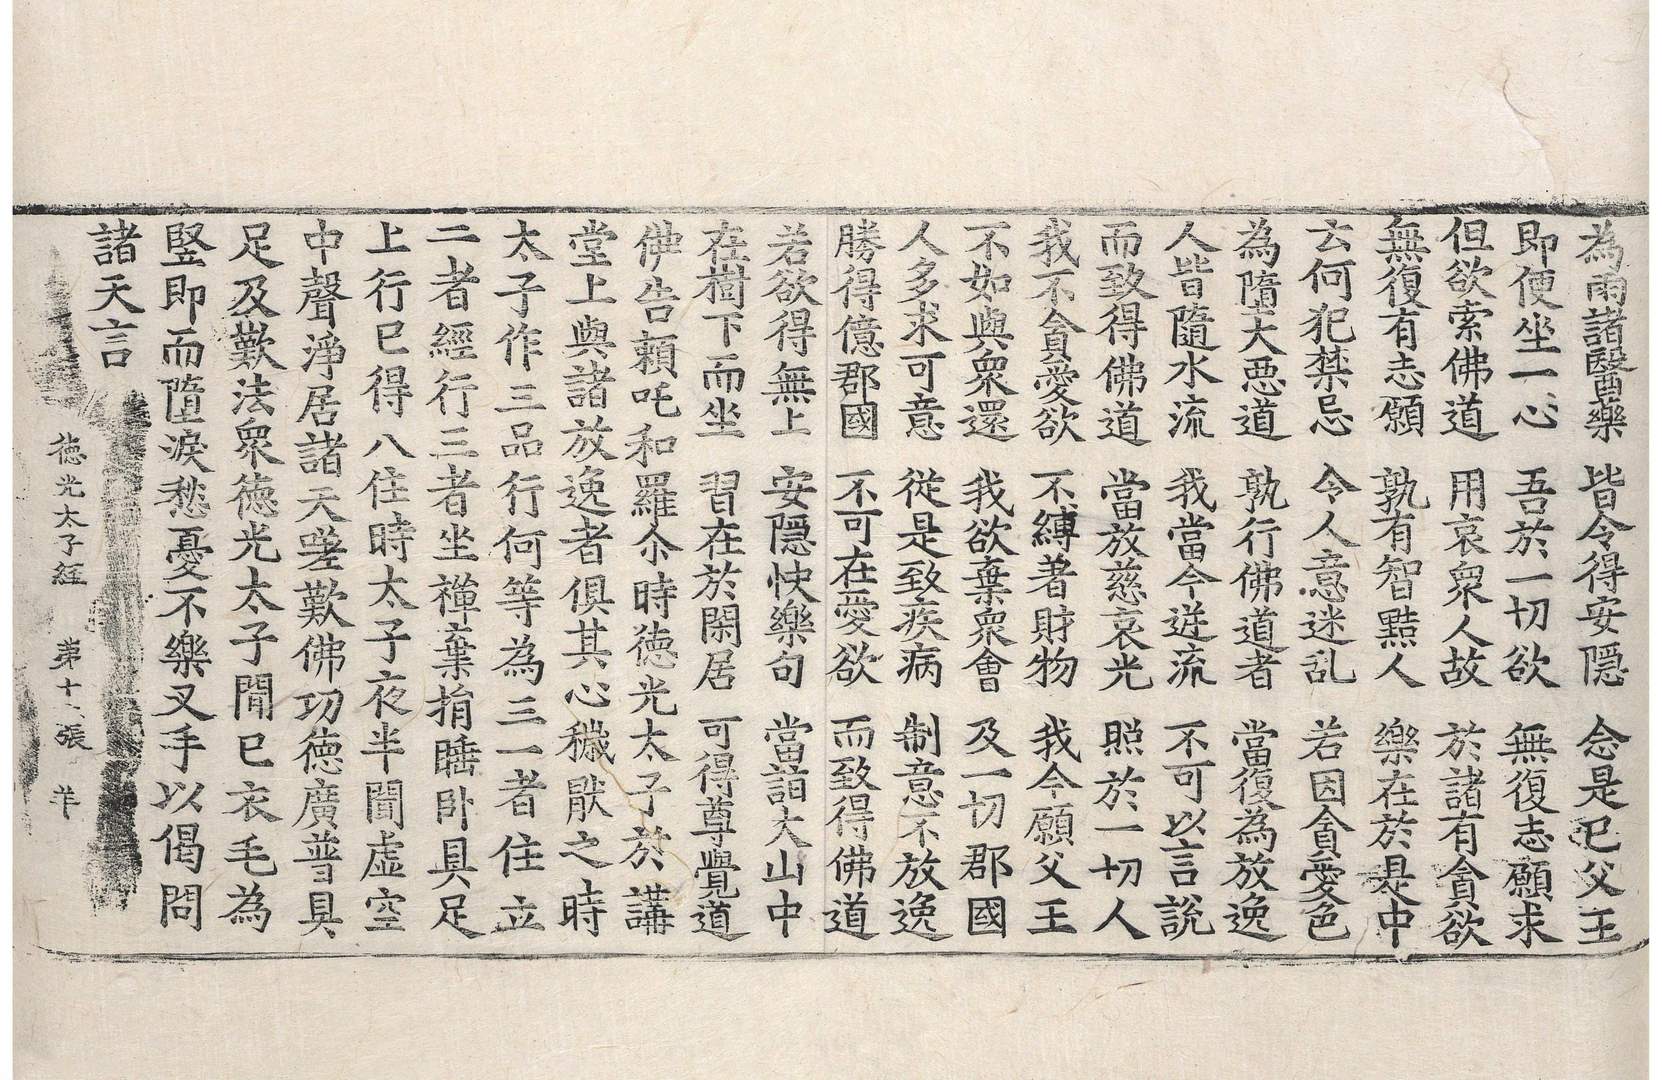 為雨諸醫藥 皆令得安隱 念是已父王
即便坐一心 吾於一切欲 無復志願求
但欲索佛道 用哀衆人故 於諸有貪欲
無復有志願 孰有智黠人 樂在於是中
玄何犯禁忌 令人意迷乱 若因貪愛色
為墮大惡道 孰行佛道者 當復為放逸
人皆隨水流 我當今逆流 不可以言說
而致得佛道 當放慈哀光 照於一切人
我不貪愛欲 不縛著財物 我今願父王
不如與衆還 我欲棄衆會 及一切郡國
人多求可意 從是致疾病 制意不放逸
勝得億郡國 不可在愛欲 而致得佛道
若欲得無上 安隱快樂句 當詣大山中
在樹下而坐 習在於閑居 可得尊覺道
佛告賴吒和羅尒時德光太子於講
堂上與諸放逸者俱其心穢猒之時
太子作三品行何等為三一者住立
二者經行三者坐禪棄捐睡卧具足
上行已得八住時太子夜半聞虛空
中聲淨居諸天嗟歎佛功德廣普具
足及歎法衆德光太子聞已衣毛為
竪即而墮淚愁憂不樂叉手以偈問
諸天言
德光太子經 第十六張 羊